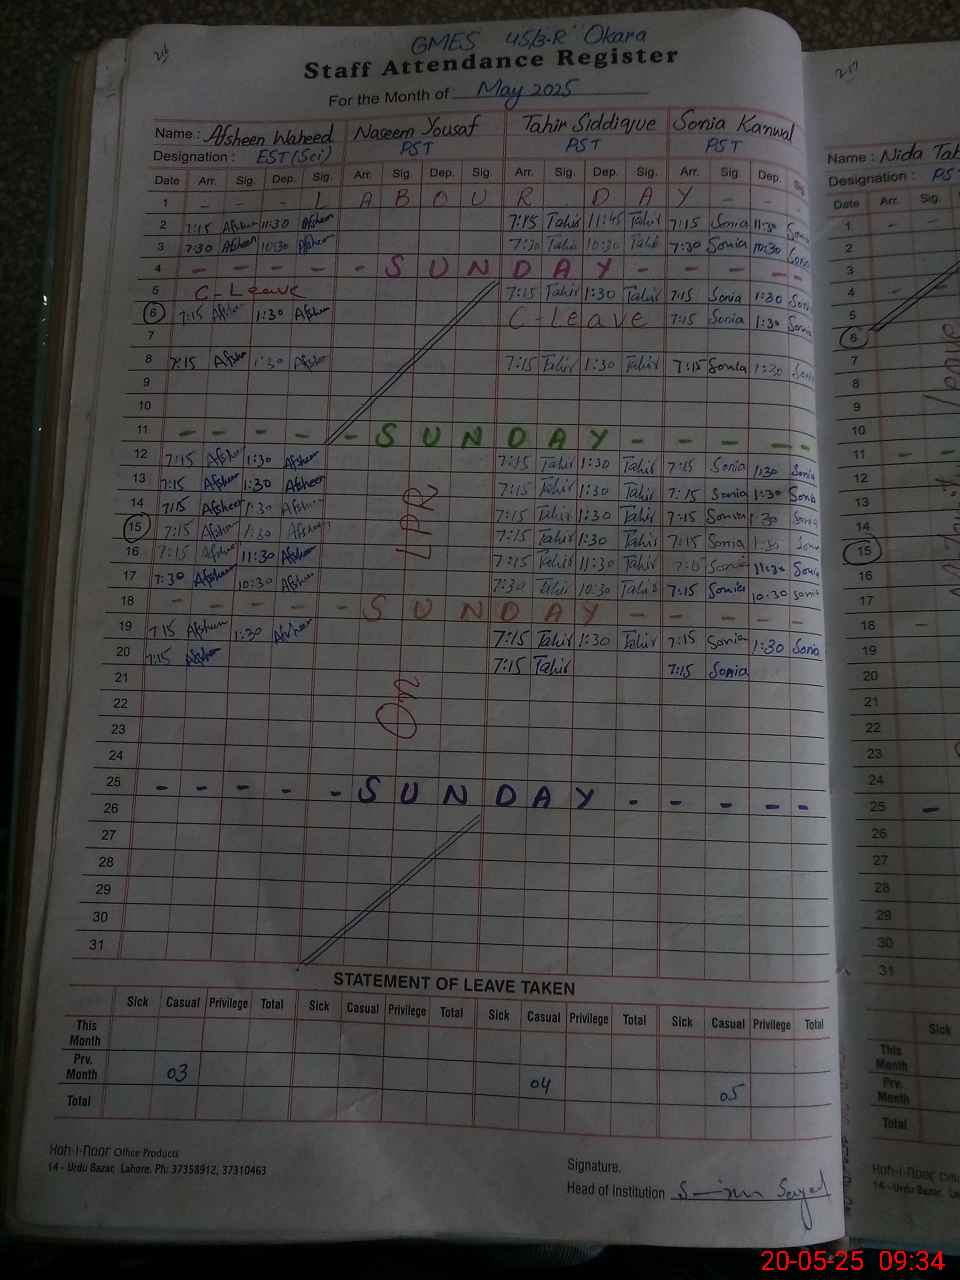 GMES 45/3-R Okara
Staff Attendance Register
For the Month of May 2025
Name : Afsheen Waheed Naseem Yousaf Tahir Siddique Sonia Kanwal
Designation : EST(Sci) PST PST PST
Date Arr. Sig. Dep. Sig. Arr. Sig. Dep. Sig. Arr. Sig. Dep. Sig. Arr. Sig. Dep. Sig.
1 - - - L A B O U R D A Y - - -
2 7:15 Afsheen 11:30 Afsheen 7:15 Tahir 11:45 Tahir 7:15 Sonia 11:30 Sonia
3 7:30 Afsheen 10:30 Afsheen 7:30 Tahir 10:30 Tahir 7:30 Sonia 10:30 Sonia
4 - - - - - S U N D A Y - - - - -
5 C-Leave 7:15 Tahir 1:30 Tahir 7:15 Sonia 1:30 Sonia
6 7:15 Afsheen 1:30 Afsheen C-Leave 7:15 Sonia 1:30 Sonia
7
8 7:15 Afsheen 1:30 Afsheen 7:15 Tahir 1:30 Tahir 7:15 Sonia 1:30 Sonia
9
10
11 - - - - - S U N D A Y - - - - -
12 7:15 Afsheen 1:30 Afsheen 7:15 Tahir 1:30 Tahir 7:15 Sonia 1:30 Sonia
13 7:15 Afsheen 1:30 Afsheen 7:15 Tahir 1:30 Tahir 7:15 Sonia 1:30 Sonia
14 7:15 Afsheen 1:30 Afsheen 7:15 Tahir 1:30 Tahir 7:15 Sonia 1:30 Sonia
15 7:15 Afsheen 1:30 Afsheen 7:15 Tahir 1:30 Tahir 7:15 Sonia 1:30 Sonia
16 7:15 Afsheen 11:30 Afsheen 7:15 Tahir 11:30 Tahir 7:15 Sonia 11:30 Sonia
17 7:30 Afsheen 10:30 Afsheen 7:30 Tahir 10:30 Tahir 7:15 Sonia 10:30 Sonia
18 - - - - - S U N D A Y - - - - -
19 7:15 Afsheen 1:30 Afsheen 7:15 Tahir 1:30 Tahir 7:15 Sonia 1:30 Sonia
20 7:15 Afsheen 7:15 Tahir 7:15 Sonia
On LPR
21
22
23
24
25 - - - - - S U N D A Y - - - - -
26
27
28
29
30
31
STATEMENT OF LEAVE TAKEN
Sick Casual Privilege Total Sick Casual Privilege Total Sick Casual Privilege Total Sick Casual Privilege Total
This Month
Prv. Month 03 04 05
Total
Koh-i-Noor Office Products
14 - Urdu Bazar, Lahore. Ph: 37358912, 37310463
Signature.
Head of Institution
217
Name : Nida
Designation : PST
Date Arr. Sig.
1 -
2
3
4 -
5
6
7
8
9
10
11 - -
12
13
14
15
16
17
18 -
19
20
21
22
23
24
25 -
26
27
28
29
30
31
Sick
This Month
Prv. Month
Total
Koh-i-Noor
14 - Urdu Bazar,
20-05-25 09:34